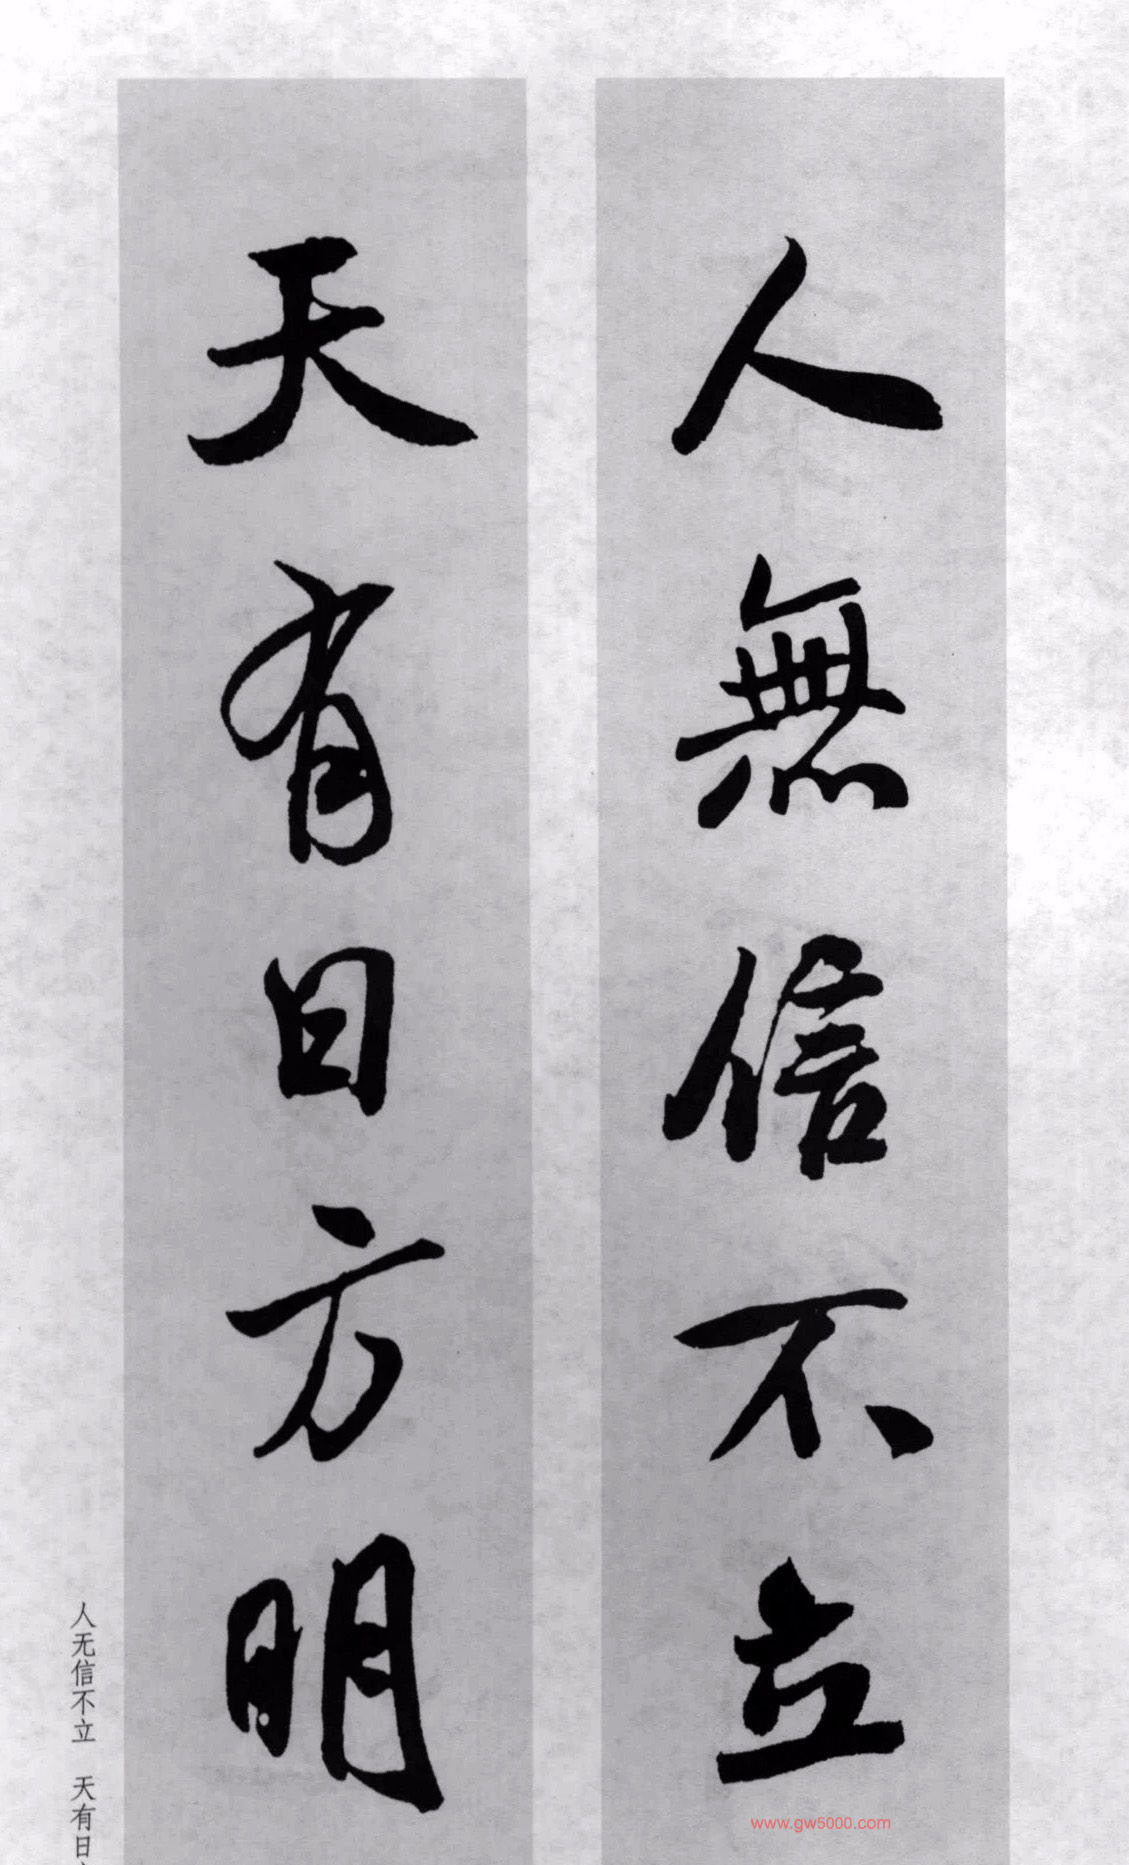 人無信不立
天有日方明
人无信不立　天有日
www.gw5000.com